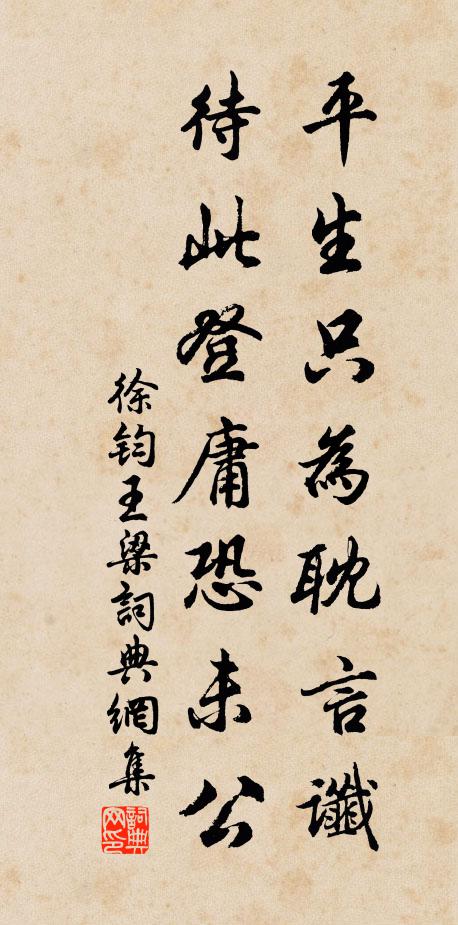 平生只為耽言讖
待此登庸恐未公
徐鈞王梁詞典網集
詞典网印